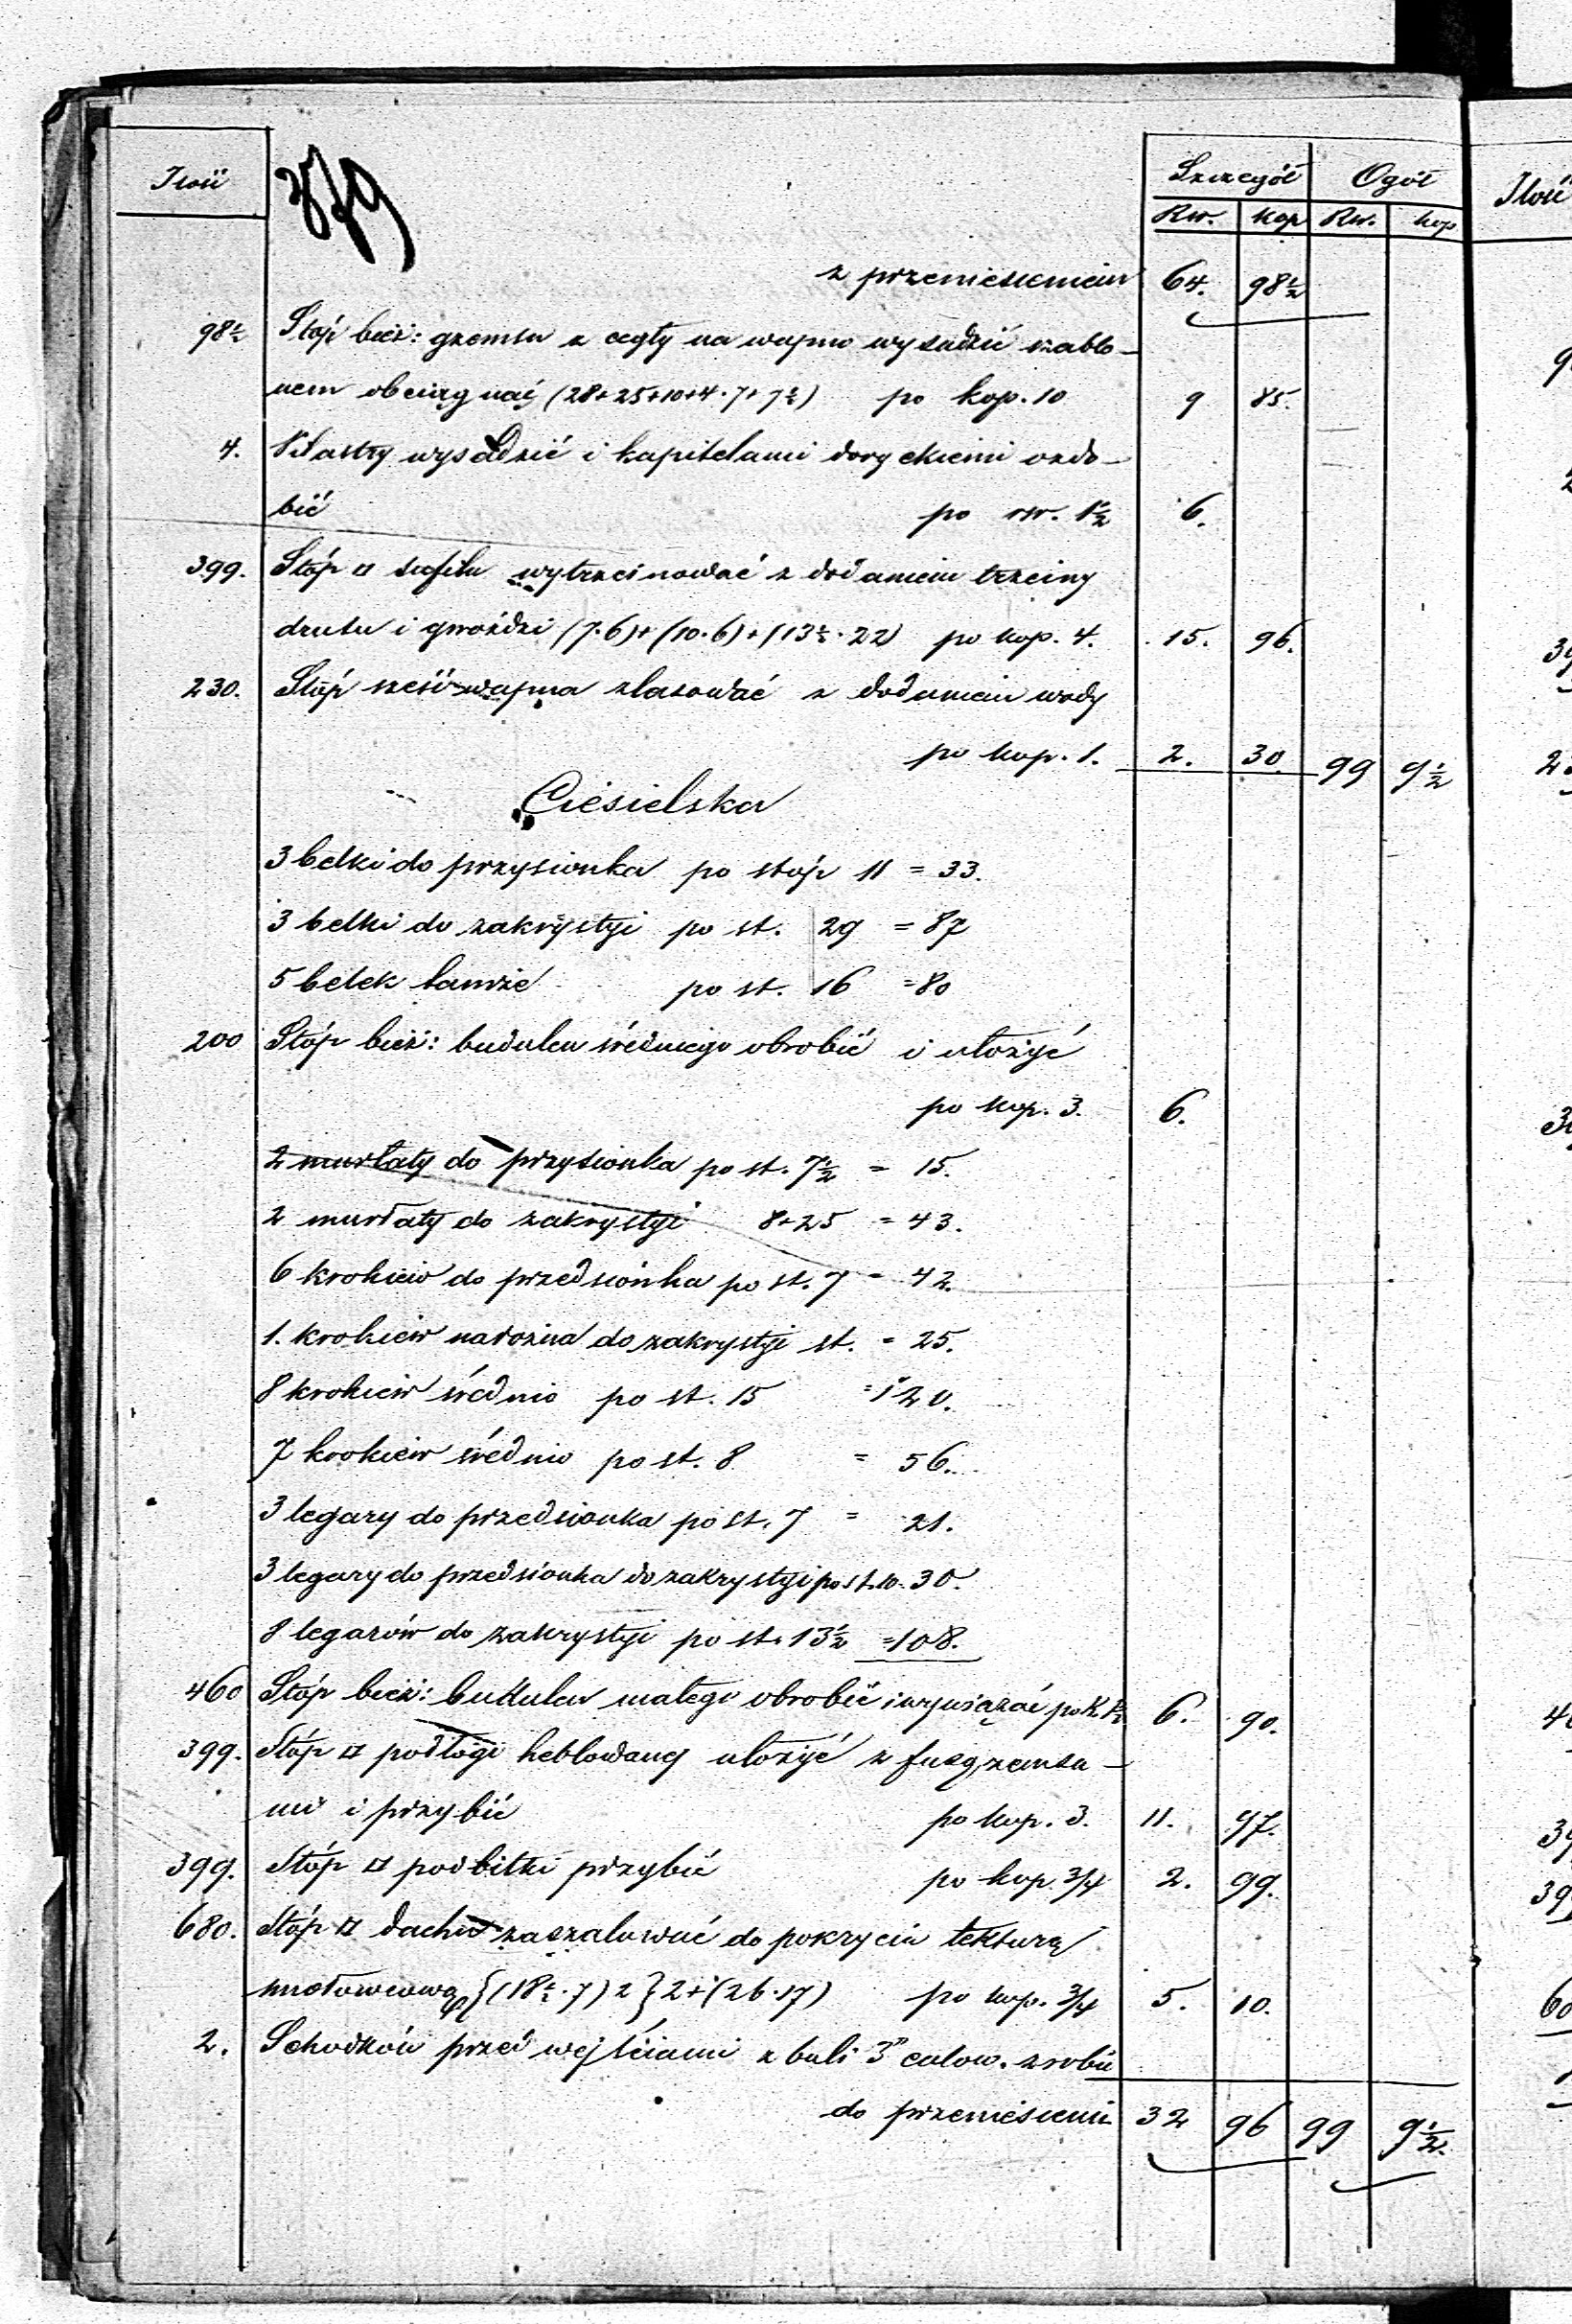 Ilość 379 Szczegół Ogół Ilość
Rsr. kop Rsr. kop
z przeniesieniem 64. 98½
98½ Stóp bież: gzemsu z cegły na wapno wysadzić szablo-
nem obciągnąć (28+25+10+4·7+7½) po kop. 10 9 85.
4. Pilastry wysadzić i kapitelami doryckiemi ozdo-
bić po rsr. 1½ 6.
399. Stóp □ sufitu wytrzcinować z dodaniem trzciny
drutu i gwoździ (7·6)+(10·6)+(13½·22) po kop. 4. 15. 96.
230. Stóp sześć wapna zlasować z dodaniem wody
po kop. 1. 2. 30. 99 9½
Ciesielska
3 belki do przysionka po stóp 11 = 33.
3 belki do zakrystyi po st. 29 = 87
5 belek tamże po st. 16 = 80
200 Stóp bież: budulcu średniego obrobić i ułożyć
po kop. 3. 6.
2 murłaty do przysionka po st. 7½ = 15.
2 murłaty do zakrystyi 8+25 = 43.
6 krokiew do przedsionka po st. 7 = 42.
1. krokiew narożna do zakrystyi st. = 25.
8 krokiew średnio po st. 15 = 120.
7 krokiew średnio po st. 8 = 56.
3 legary do przedsionka po st. 7 = 21.
3 legary do przedsionka do zakrystyi po st. 10. 30.
8 legarów do zakrystyi po st. 13½ = 108.
460 Stóp bież: budulcu małego obrobić i wywiązać po k. 1½ 6. 90.
399. Stóp □ podłogi heblowanej ułożyć z fusgzemsa-
mi i przybić po kop. 3. 11. 97.
399. Stóp □ podbitki przybić po kop. 3/4 2. 99.
680. Stóp □ dachu zaszalować do pokrycia tekturą
smołowcową {(18½·7) 2} 2+(26·17) po kop. 3/4 5. 10.
2. Schodków przed wejściami z bali 3" calow. zrobić
do przeniesienia 32 96 99 9½.